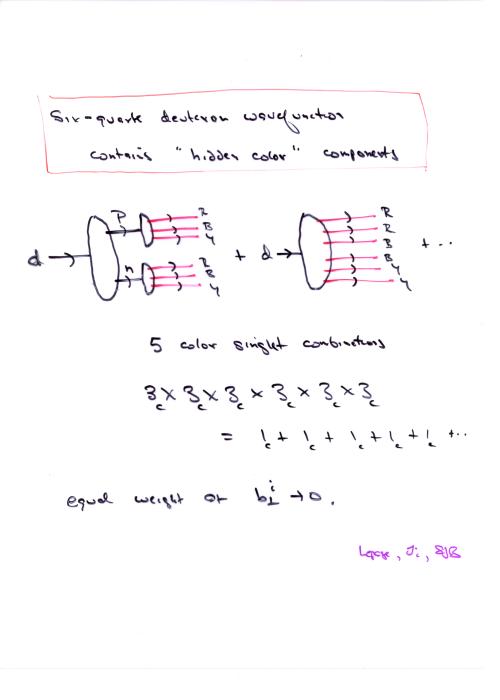 Six-quark deuteron wavefunction
contains "hidden color" components
d p R B Y n R B Y + d R R B B Y Y + ...
5 color singlet combinations
3c × 3c × 3c × 3c × 3c × 3c
= 1c + 1c + 1c + 1c + 1c + ...
equal weight at b⊥^i → 0.
Lepage, Ji, SJB